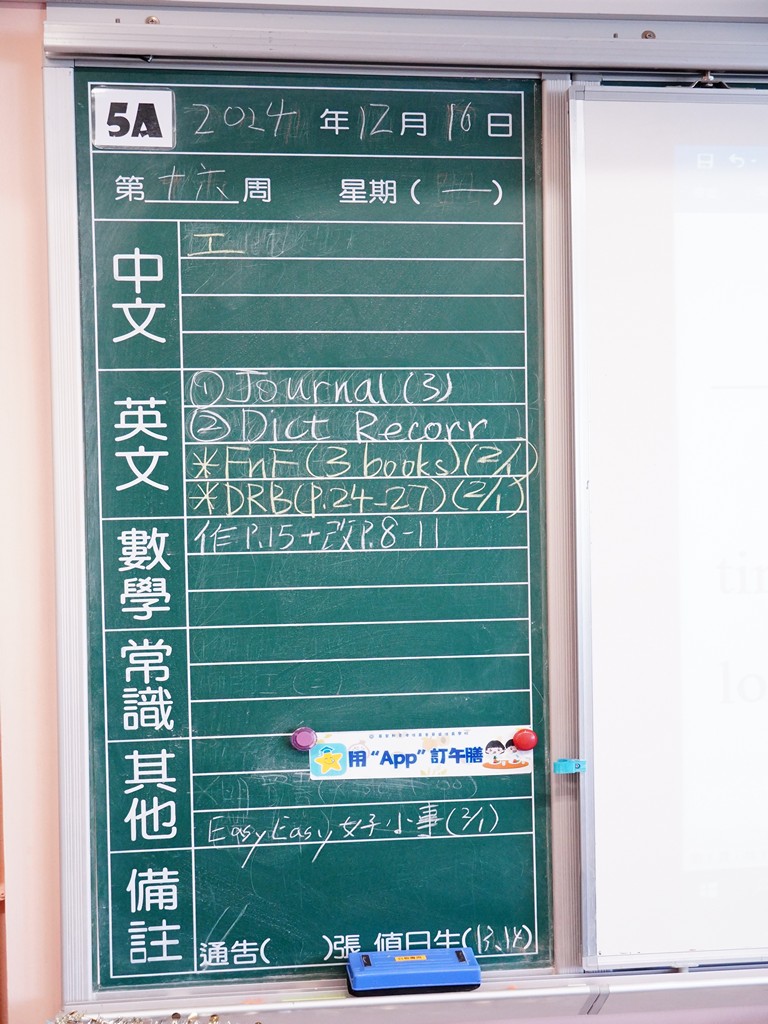 5A 2024 年 12 月 16 日
第 十六 周 星期 ( 一 )
中文 工
英文 ① Journal (3)
② Dict Recorr
*FnF (3 books) (2/1)
*DRB (P.24-27) (2/1)
數學 作 P.15 + 改 P.8-11
常識
其他
用 “App” 訂午膳
EasyEasy 女子小事 (2/1)
備註
通告( )張 值日生(13.14)